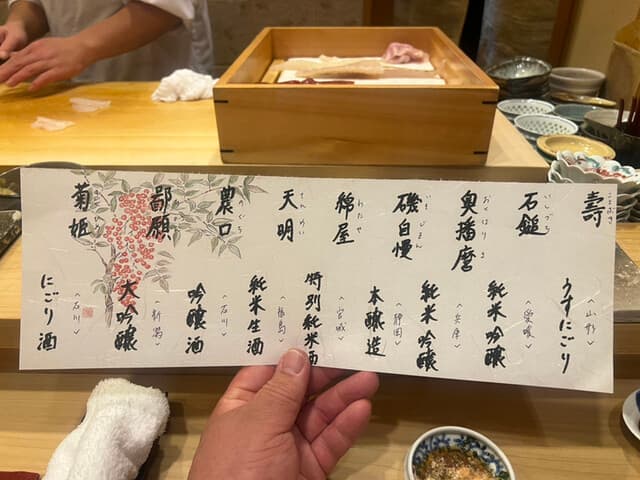 壽
ことぶき
〈山形〉
うすにごり
石鎚
いしづち
〈愛媛〉
純米吟醸
奥播磨
おくはりま
〈兵庫〉
純米吟醸
磯自慢
いそじまん
〈静岡〉
本醸造
綿屋
わたや
〈宮城〉
特別純米酒
天明
てんめい
〈福島〉
純米生酒
農口
のぐち
〈石川〉
吟醸酒
鄙願
〈新潟〉
大吟醸
菊姫
〈石川〉
にごり酒